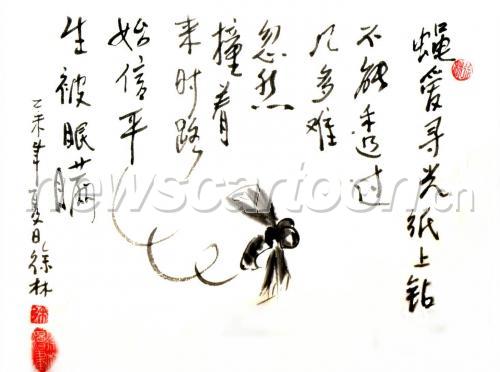 蝇爱寻光纸上钻
不能透过
几多难
忽然
撞着
来时路
始信平
生被眼瞒
乙未年夏日徐林
newscartoon.cn